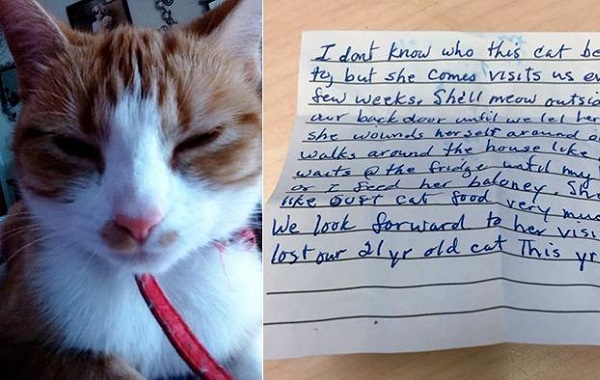 I dont know who this cat be
to, but she comes visits us ev
few weeks. She'll meow outsid
our back door until we let her
she wounds herself around o
walks around the house like
waits @ the fridge until my
or I feed her baloney. She
like our cat food very muc
We look forward to her visi
lost our 21 yr old cat This yr